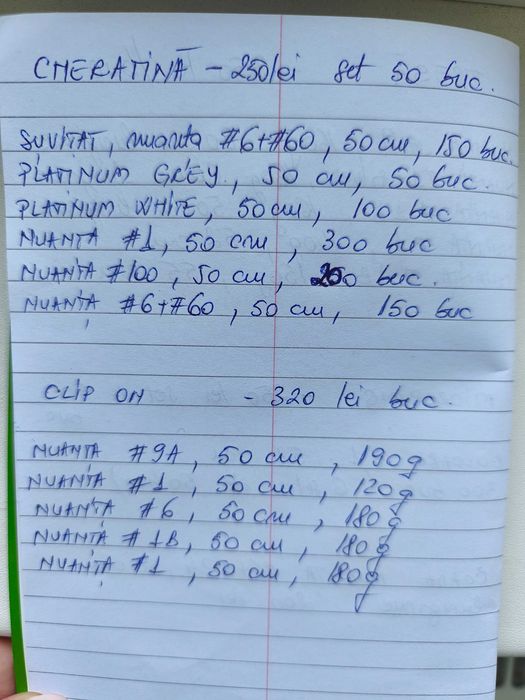 CHERATINĂ - 250 lei set 50 buc.
SUVITAT, nuanta #6+#60, 50 cm, 150 buc.
PLATINUM GREY, 50 cm, 50 buc.
PLATINUM WHITE, 50 cm, 100 buc
NUANTA #1, 50 cm, 300 buc
NUANTA #100, 50 cm, 200 buc.
NUANȚA #6+#60, 50 cm, 150 buc
CLIP ON - 320 lei buc.
NUANTA #9A, 50 cm, 190g
NUANTA #1, 50 cm, 120g
NUANTA #6, 50 cm, 180g
NUANȚA #1B, 50 cm, 180g
NUANȚA #1, 50 cm, 180g